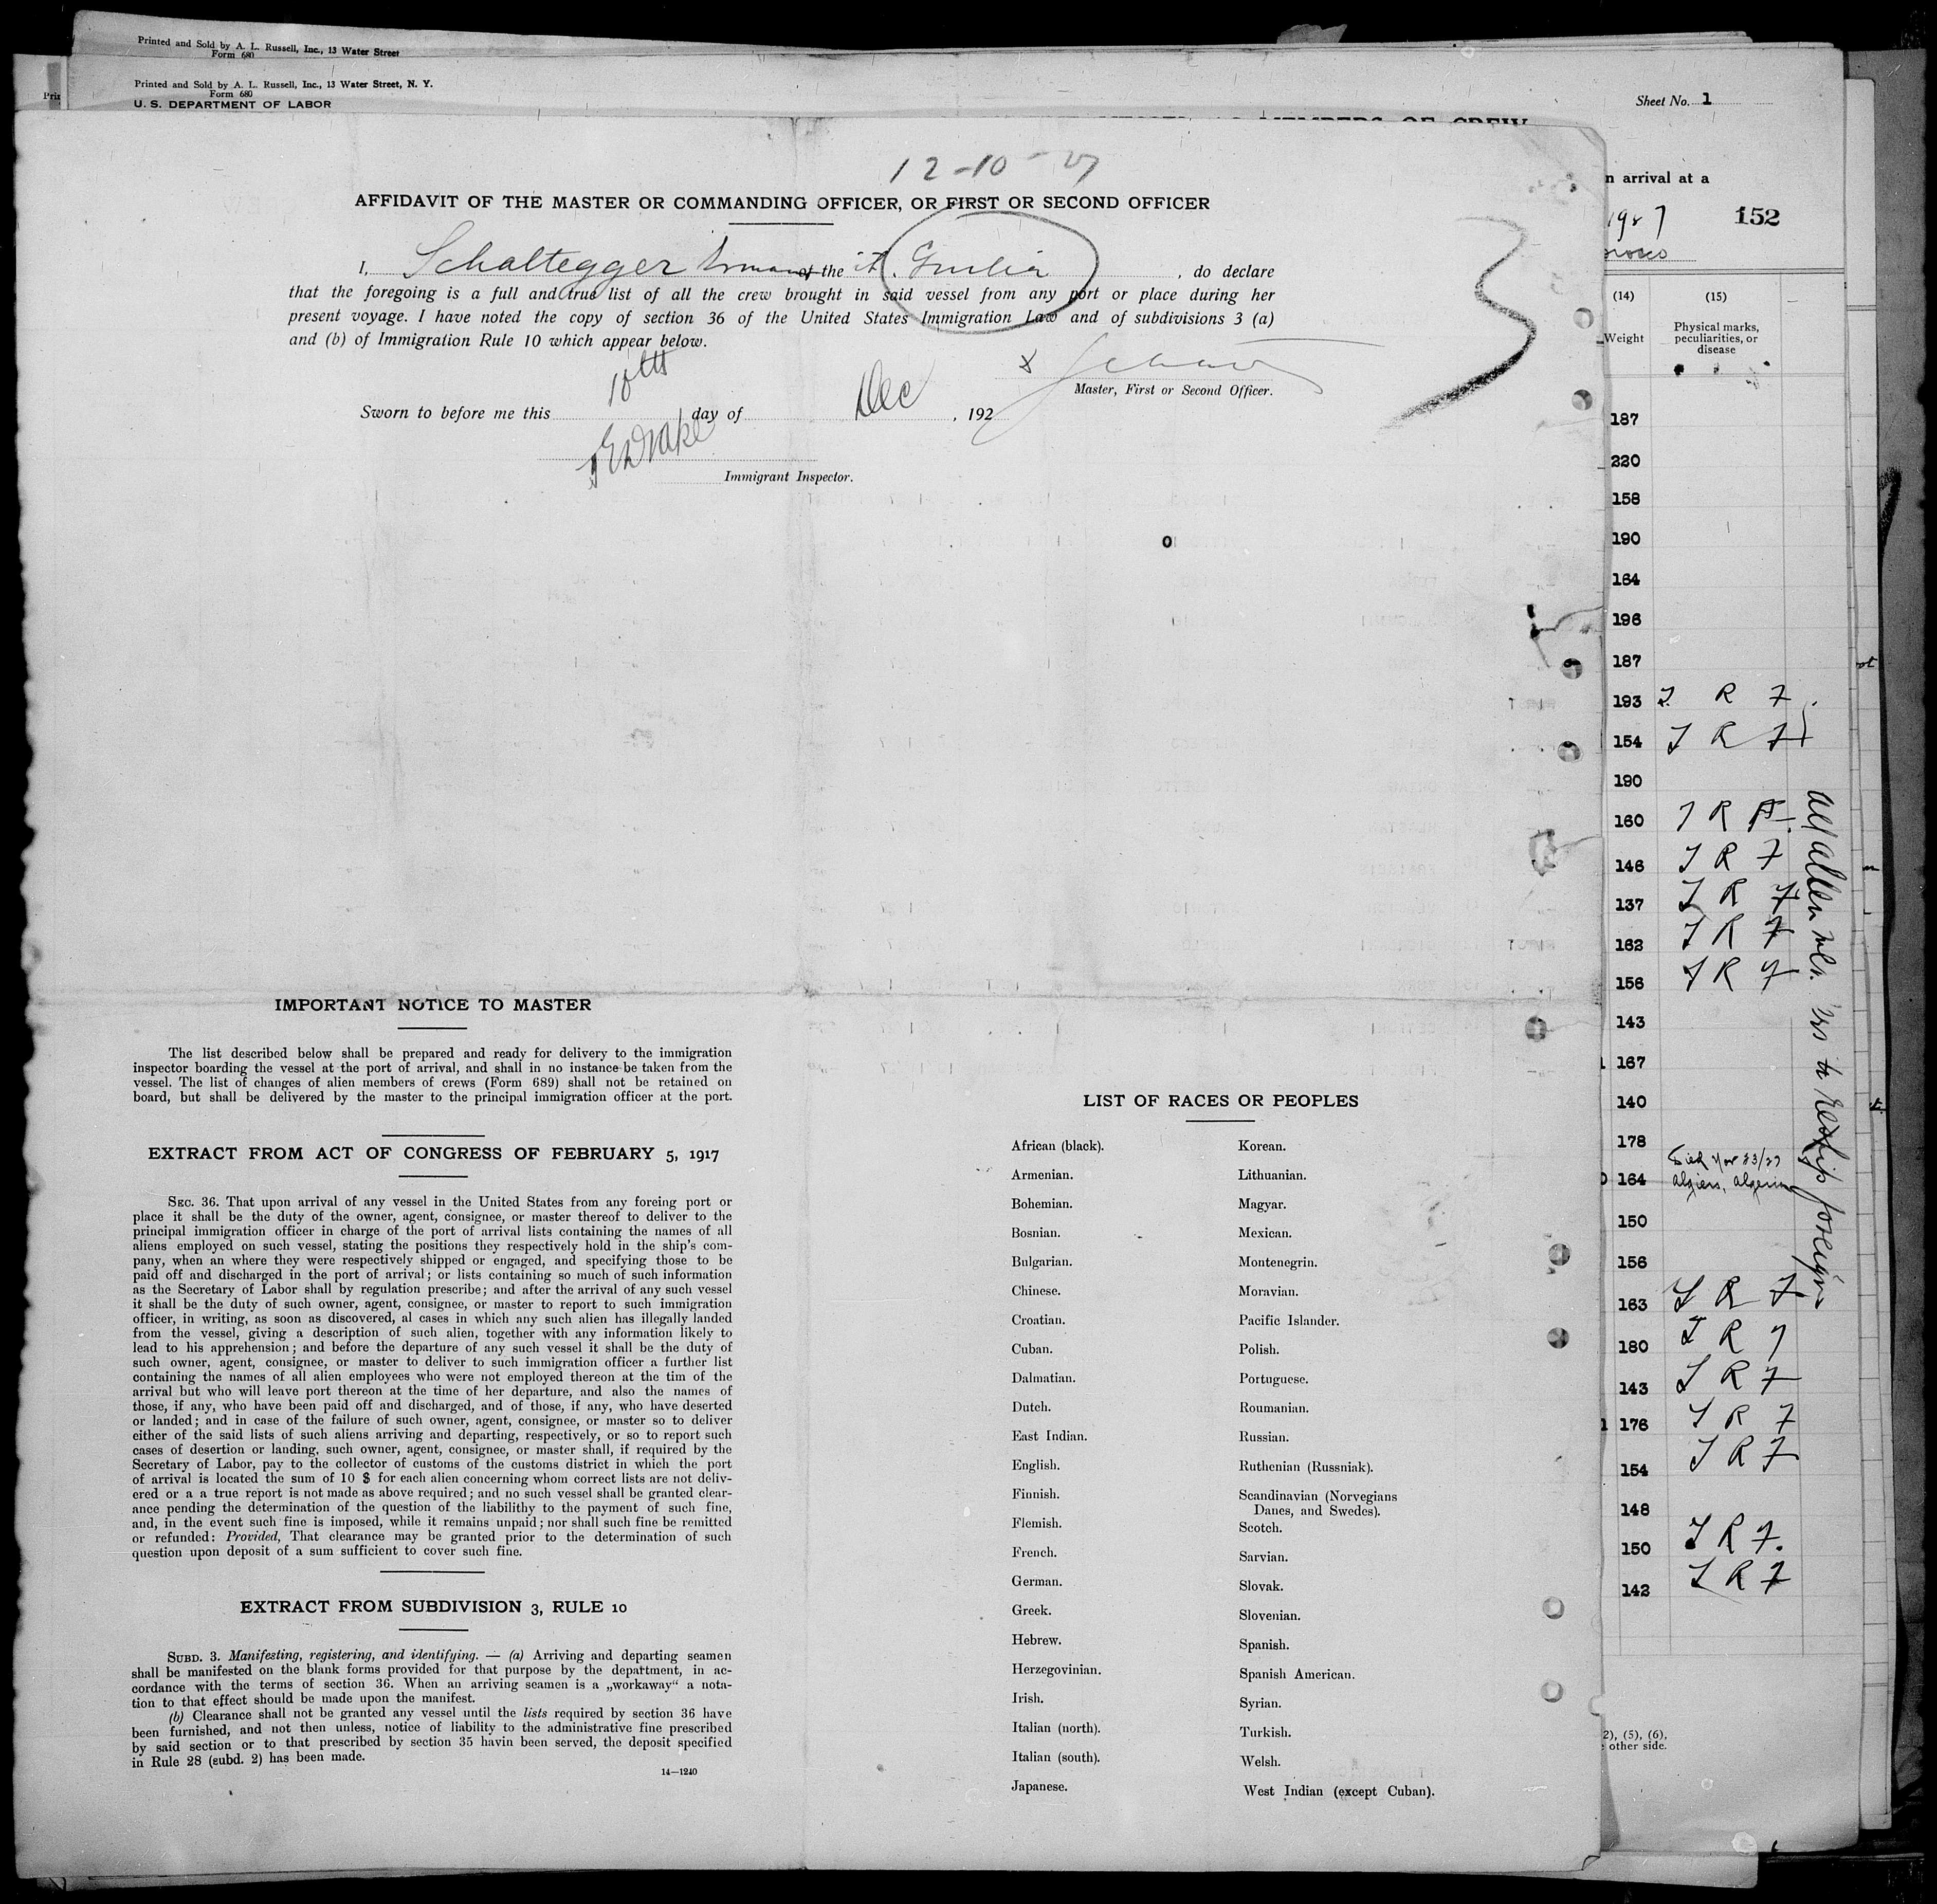 Printed and Sold by A. L. Russell, Inc., 13 Water Street
Form 680
Printed and Sold by A. L. Russell, Inc., 13 Water Street, N. Y.
Form 680
U. S. DEPARTMENT OF LABOR
Sheet No. 1
MEMBERS OF CREW
12-10-27
AFFIDAVIT OF THE MASTER OR COMMANDING OFFICER, OR FIRST OR SECOND OFFICER
I, Schaltegger of the it. Giulia, do declare
that the foregoing is a full and true list of all the crew brought in said vessel from any port or place during her
present voyage. I have noted the copy of section 36 of the United States Immigration Law and of subdivisions 3 (a)
and (b) of Immigration Rule 10 which appear below.
Master, First or Second Officer.
Sworn to before me this 10th day of Dec, 192
Drake
Immigrant Inspector.
IMPORTANT NOTICE TO MASTER
The list described below shall be prepared and ready for delivery to the immigration
inspector boarding the vessel at the port of arrival, and shall in no instance be taken from the
vessel. The list of changes of alien members of crews (Form 689) shall not be retained on
board, but shall be delivered by the master to the principal immigration officer at the port.
EXTRACT FROM ACT OF CONGRESS OF FEBRUARY 5, 1917
SEC. 36. That upon arrival of any vessel in the United States from any foreing port or
place it shall be the duty of the owner, agent, consignee, or master thereof to deliver to the
principal immigration officer in charge of the port of arrival lists containing the names of all
aliens employed on such vessel, stating the positions they respectively hold in the ship's com-
pany, when an where they were respectively shipped or engaged, and specifying those to be
paid off and discharged in the port of arrival; or lists containing so much of such information
as the Secretary of Labor shall by regulation prescribe; and after the arrival of any such vessel
it shall be the duty of such owner, agent, consignee, or master to report to such immigration
officer, in writing, as soon as discovered, al cases in which any such alien has illegally landed
from the vessel, giving a description of such alien, together with any information likely to
lead to his apprehension; and before the departure of any such vessel it shall be the duty of
such owner, agent, consignee, or master to deliver to such immigration officer a further list
containing the names of all alien employees who were not employed thereon at the tim of the
arrival but who will leave port thereon at the time of her departure, and also the names of
those, if any, who have been paid off and discharged, and of those, if any, who have deserted
or landed; and in case of the failure of such owner, agent, consignee, or master so to deliver
either of the said lists of such aliens arriving and departing, respectively, or so to report such
cases of desertion or landing, such owner, agent, consignee, or master shall, if required by the
Secretary of Labor, pay to the collector of customs of the customs district in which the port
of arrival is located the sum of 10 $ for each alien concerning whom correct lists are not deliv-
ered or a a true report is not made as above required; and no such vessel shall be granted clear-
ance pending the determination of the question of the liabilithy to the payment of such fine,
and, in the event such fine is imposed, while it remains unpaid; nor shall such fine be remitted
or refunded: Provided, That clearance may be granted prior to the determination of such
question upon deposit of a sum sufficient to cover such fine.
EXTRACT FROM SUBDIVISION 3, RULE 10
SUBD. 3. Manifesting, registering, and identifying. — (a) Arriving and departing seamen
shall be manifested on the blank forms provided for that purpose by the department, in ac-
cordance with the terms of section 36. When an arriving seamen is a „workaway“ a nota-
tion to that effect should be made upon the manifest.
(b) Clearance shall not be granted any vessel until the lists required by section 36 have
been furnished, and not then unless, notice of liability to the administrative fine prescribed
by said section or to that prescribed by section 35 havin been served, the deposit specified
in Rule 28 (subd. 2) has been made.
14—1240
LIST OF RACES OR PEOPLES
African (black).
Armenian.
Bohemian.
Bosnian.
Bulgarian.
Chinese.
Croatian.
Cuban.
Dalmatian.
Dutch.
East Indian.
English.
Finnish.
Flemish.
French.
German.
Greek.
Hebrew.
Herzegovinian.
Irish.
Italian (north).
Italian (south).
Japanese.
Korean.
Lithuanian.
Magyar.
Mexican.
Montenegrin.
Moravian.
Pacific Islander.
Polish.
Portuguese.
Roumanian.
Russian.
Ruthenian (Russniak).
Scandinavian (Norvegians
Danes, and Swedes).
Scotch.
Sarvian.
Slovak.
Slovenian.
Spanish.
Spanish American.
Syrian.
Turkish.
Welsh.
West Indian (except Cuban).
n arrival at a
1927 152
(14) (15)
Weight
Physical marks,
peculiarities, or
disease
187
220
158
190
164
196
187
193 T R F
154 T R F
190
160 T R F
146 T R F
137 T R F
162 T R F
156 T R F
143
167
140
178
Died Nov 23/27
164 Algiers, Algeria
150
156
163 T R F
180 T R F
143 T R F
176 T R F
154 T R F
148
150 T R F
142 T R F
to reship foreign
2), (5), (6),
other side.